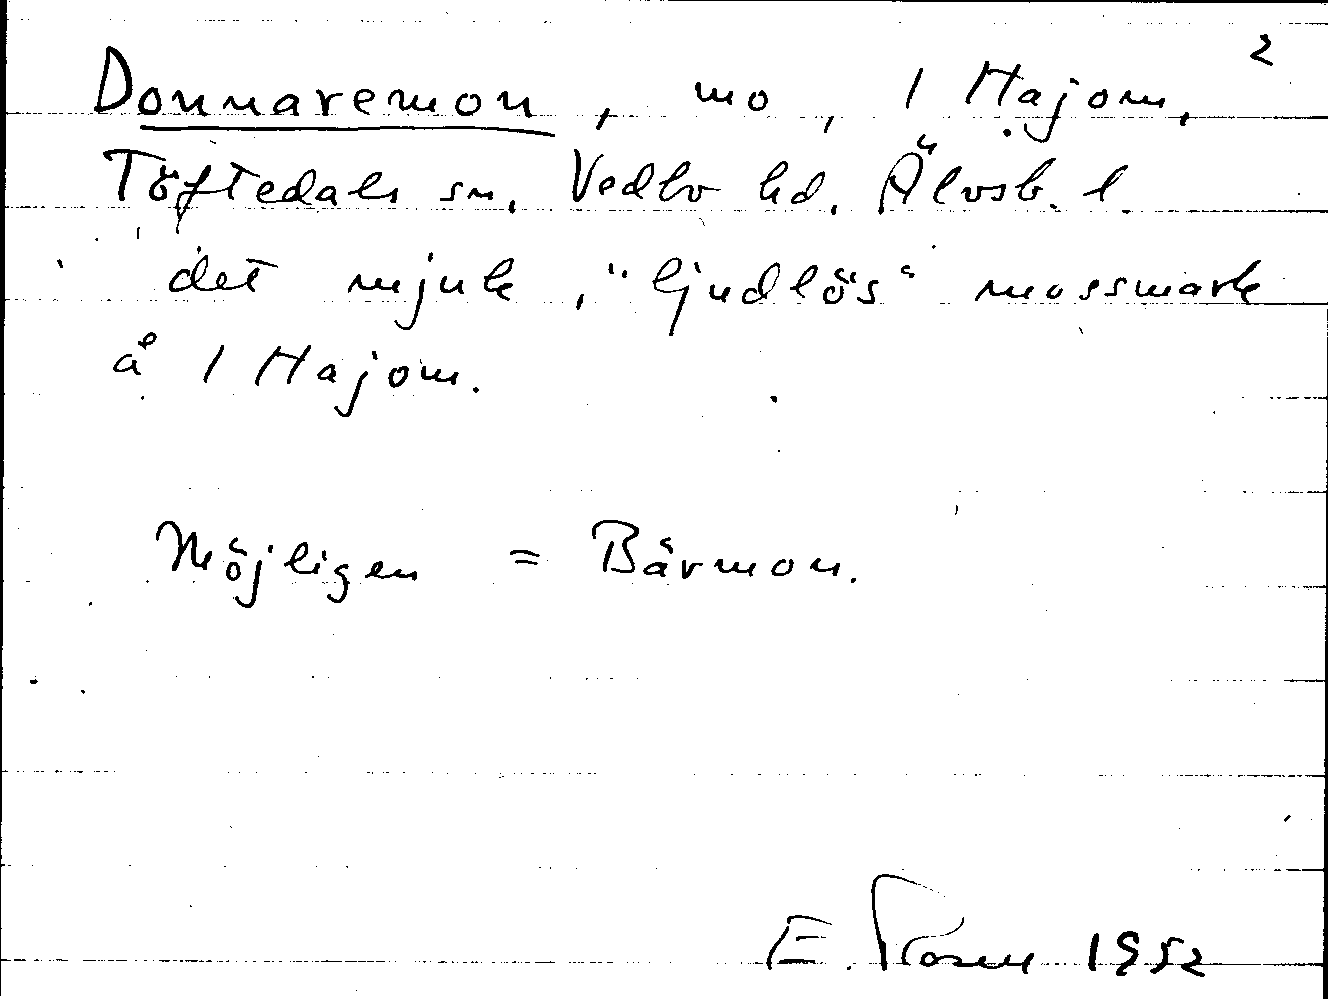 2
Donnaremon, mo, 1 Hajom,
Töftedals sn, Vedbo hd. Älvsb. l.
det mjuk, "ljudlös" mossmark
å 1 Hajom.
Möjligen = Bärmon.
E. Rosen 1952